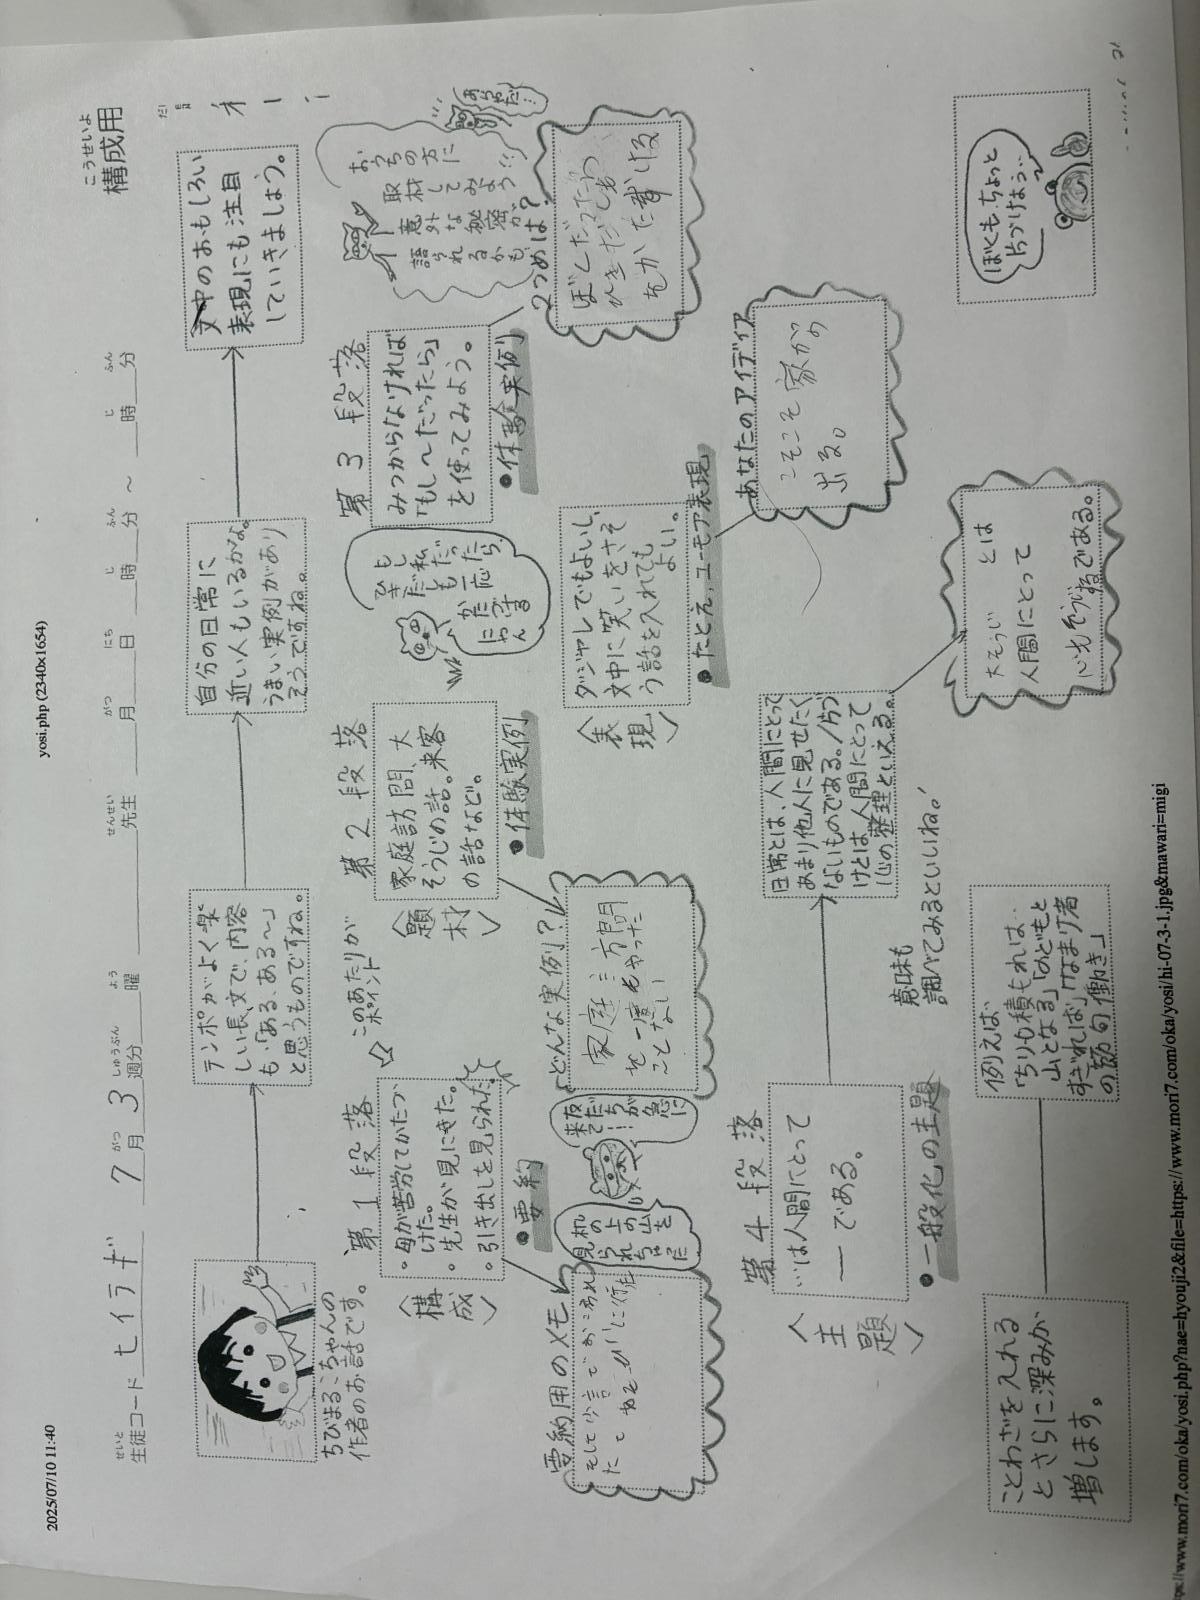 2025/07/10 11:40
yosi.php (2340x1654)
せいと
生徒コード ヒイラギ
7 がつ 月 3 しゅうぶん 週分 よう 曜 せんせい 先生 がつ 月 にち 日 じ 時 ふん 分 ～ じ 時 ふん 分
こうせいよ
構成用
ちびまる子ちゃんの
作者のお話です。
テンポがよく楽
しい長文で、内容
も「ある、ある～」
と思うものですね。
自分の日常に
近い人もいるかな。
うまい実例があり
そうですね。
文中のおもしろい
表現にも注目
していきましょう。
だい
第1段落
〈構成〉
・母が苦労してかたづ
けた。
・先生が見にきた。
・引き出しを見られた。
・要約
このあたりが
ポイント
第2段落
〈題材〉
家庭訪問、大
そうじの話。来客
の話など。
・体験実例
第3段落
みつからなければ
「もし～だったら」
を使ってみよう。
・体験実例
もし
ひきだし
私だったら
一応
かたづける
おうちの方に
取材してみよう!!
意外な秘密が
語られるかも
あらやだ…
要約用のメモ
机の上の山を
見られちゃった
どんな実例?
家庭訪問
を一度もやった
ことない
2つめは?
〈表現〉
ダジャレでもよいし、
文中に笑いをさそ
う話を入れても
よい。
・たとえ、ユーモア表現
あなたのアイディア
出る。
第4段落
〈主題〉
…は人間にとって
― である。
・一般化の主題
日常とは、人間にとって
あまり他人に見せたく
ないものである。/片づ
けとは人間にとって
心の整理といえる。
大そうじ とは
人間にとって
である。
ことわざを入れる
とさらに深みが
増します。
例えば、
「ちりも積もれば…
山となる」「のどもと
すぎれば」「なまけ者
の節句働き」
意味も
調べてみるといいね。
ぼくもちょっと
片づけよう…
https://www.mori7.com/oka/yosi.php?nae=hyouji2&file=https://www.mori7.com/oka/yosi/hi-07-3-1.jpg&mawari=migi